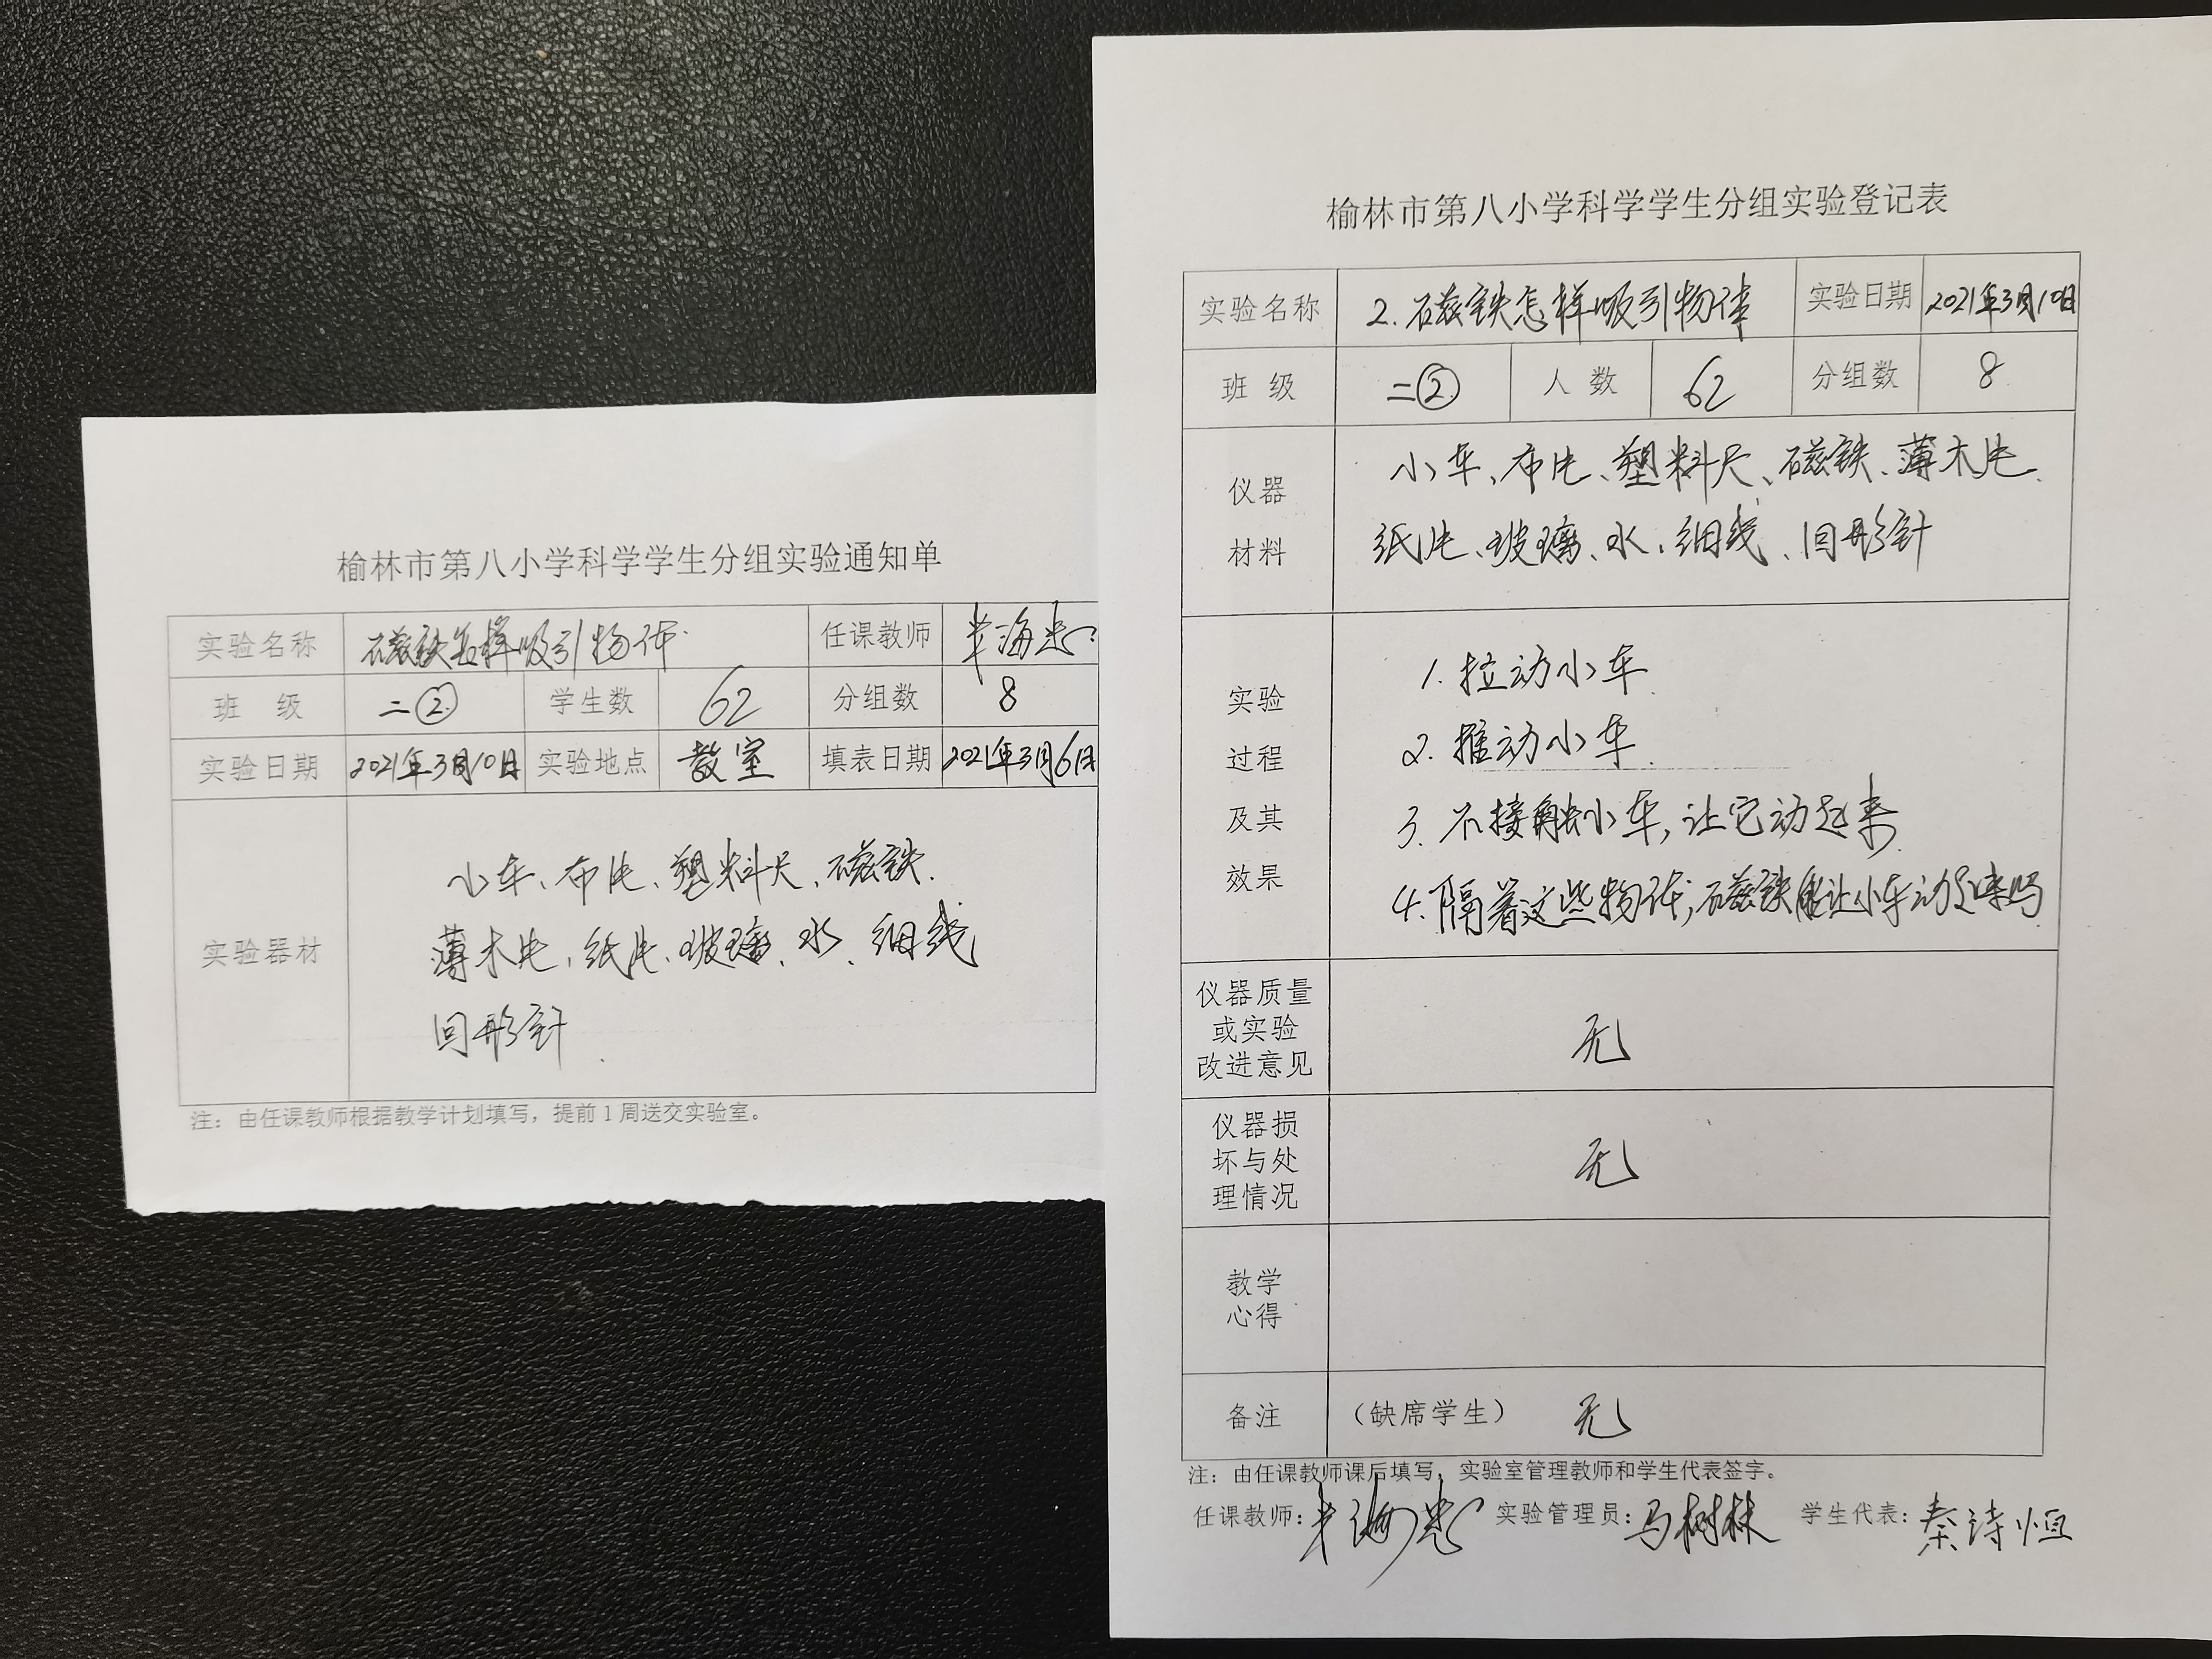 榆林市第八小学科学学生分组实验通知单
实验名称 磁铁怎样吸引物体 任课教师
班 级 二② 学生数 62 分组数 8
实验日期 2021年3月10日 实验地点 教室 填表日期 2021年3月6日
实验器材
小车、布片、塑料尺、磁铁、
薄木片、纸片、玻璃、水、细线
回形针
注：由任课教师根据教学计划填写，提前1周送交实验室。
榆林市第八小学科学学生分组实验登记表
实验名称 2.磁铁怎样吸引物体 实验日期 2021年3月10日
班 级 二② 人 数 62 分组数 8
仪器
材料
小车、布片、塑料尺、磁铁、薄木片、
纸片、玻璃、水、细线、回形针
实验
过程
及其
效果
1. 拉动小车
2. 推动小车
3. 不接触小车，让它动起来
4. 隔着这些物体，磁铁能让小车动起来吗
仪器质量
或实验
改进意见
无
仪器损
坏与处
理情况
无
教学
心得
备注 （缺席学生） 无
注：由任课教师课后填写，实验室管理教师和学生代表签字。
任课教师： 实验管理员：马树林 学生代表：秦诗恒